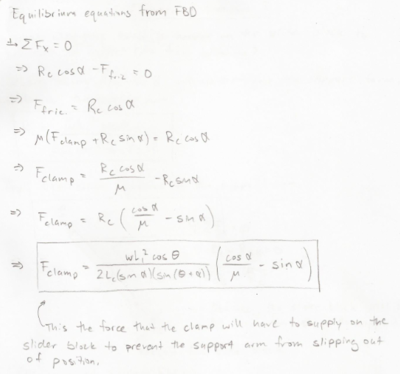 Equilibrium equations from FBD
+→ ΣFx = 0
⇒ Rc cosα - Ffric = 0
⇒ Ffric. = Rc cosα
⇒ μ(Fclamp + Rc sinα) = Rc cosα
⇒ Fclamp = Rc cosα / μ - Rc sinα
⇒ Fclamp = Rc (cosα / μ - sinα)
⇒ Fclamp = wL₁² cosθ / 2Lc(sinα)(sin(θ+α)) (cosα / μ - sinα)
This the force that the clamp will have to supply on the
slider block to prevent the support arm from slipping out
of position.